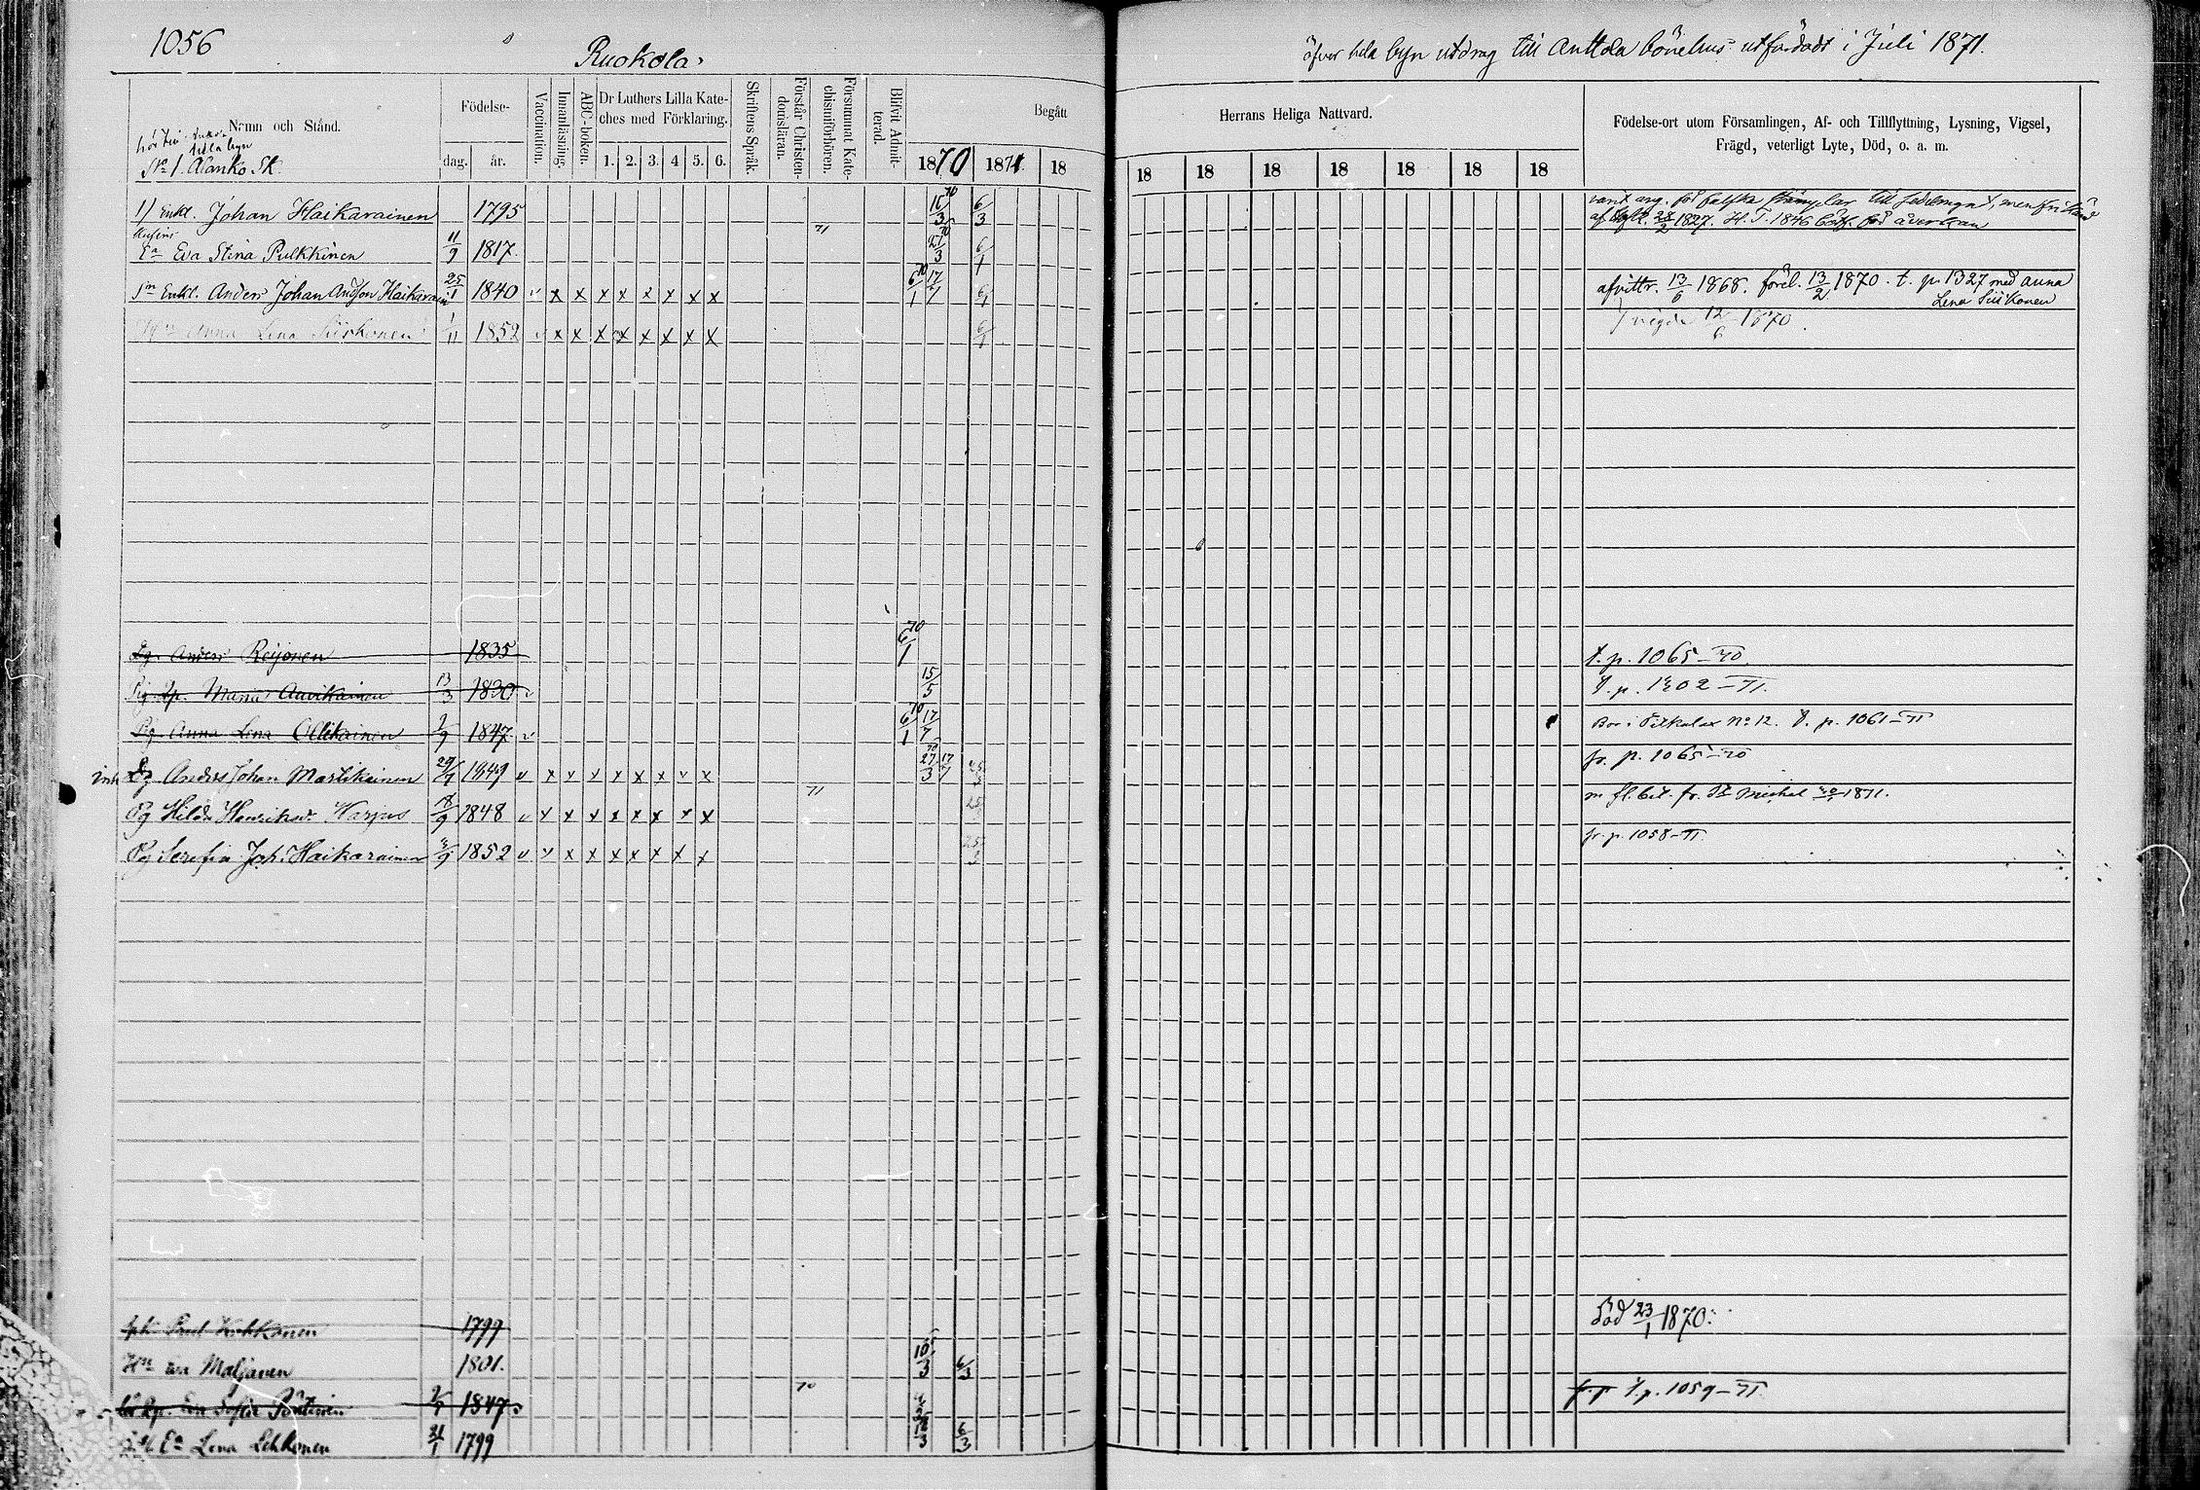 1056
Ruokola.
öfver hela byn utdrag till Anttola bönehus utfärdadt i Juli 1871.
Namn och Stånd.
hör till
hela byn
No 1. Alanko Sk.
Födelse-
dag. år.
Vaccination.
Innanläsning.
ABC-boken.
Dr Luthers Lilla Kate-
ches med Förklaring.
1. 2. 3. 4 5. 6.
Skriftens Språk.
Förstår Christen-
domsläran.
Försummat Kate-
chismiförhören.
Blifvit Admit-
terad.
Begått
1870 1871. 18
Herrans Heliga Nattvard.
18 18 18 18 18 18 18
Födelse-ort utom Församlingen, Af- och Tillflyttning, Lysning, Vigsel,
Frägd, veterligt Lyte, Död, o. a. m.
1) Enkl. Johan Haikarainen 1795 16/3 70 6/3
71
Ea Eva Stina Pulkkinen 11/9 1817. 21/3 70 6/1
Sm Enkl. Anders Johan Andsson Haikarain 25/1 1840 v x x x x x x x x 6/1 70 17/7 6/1 afvittr. 13/6 1868. förel. 13/2 1870. t. p. 1327 med Anna
Lena Siiskonen
Hu Anna Lena Siiskonen 1/11 1852 v x x x x x x x x 6/1 vigde 12/6 1870.
Dg. Anders Reijonen 1835 6/1 70 t. p. 1065-70.
Pig. Maria Auvikainen 13/3 1830 v 15/5 t. p. 1202-71.
Pig. Anna Lena Ollikainen 2/9 1847 v 6/1 70 17/7 Bor i Pitkälax No 12. t. p. 1061-71
inh Dg Anders Johan Martikainen 29/7 1849 v x v v x x x v x 27/3 70 17/7 fr. p. 1065-70
71
Pg Hilda Henriksd. Karjus 18/9 1848 v v x x x x x x x m fl. bet. fr. St Michel 1871.
Pg Serafia Joh. Haikarainen 1852 v v x x x x x x x fr. p. 1058-71.
Paul Kohkonen 1799 död 23/1 1870.
Hu Eva Maljanen 1801. 10/3 6/3
70
Eva Sofia Pöntinen 1847 t. p. 1059-71
Ea Lena Lehkonen 31/1 1799 12/3 6/3